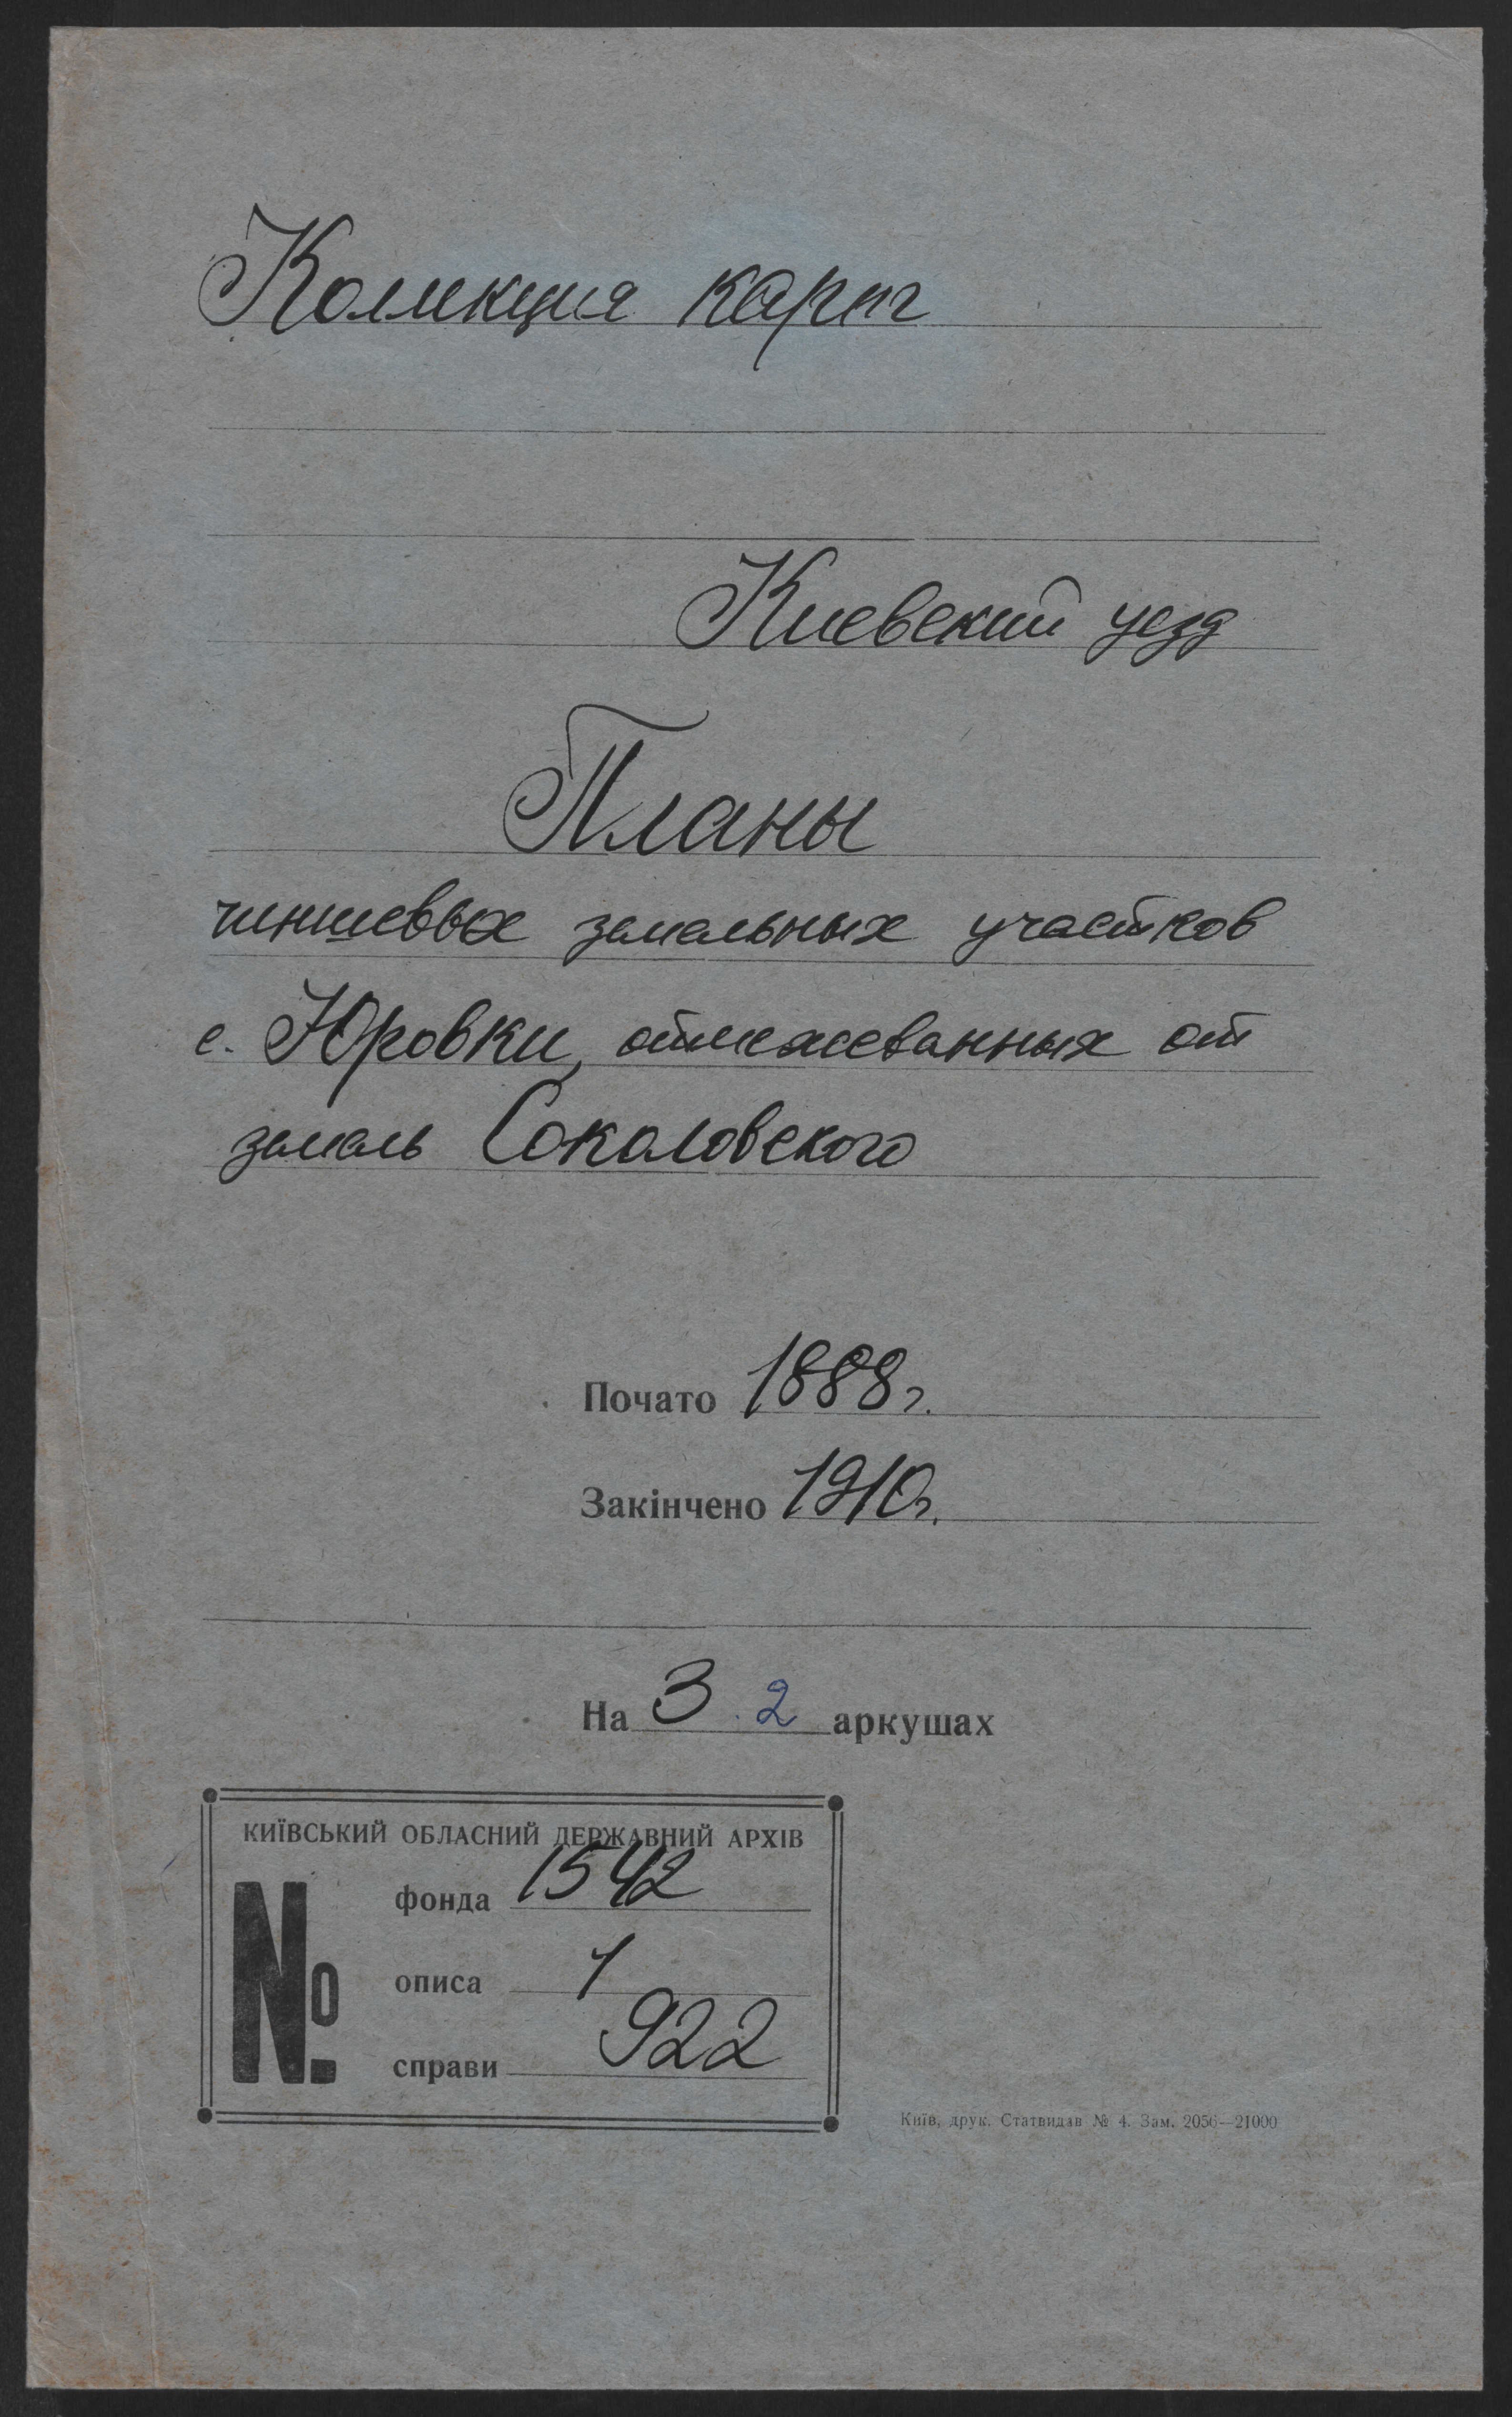 Коллекция карт
Киевский уезд
Планы
чиншевых земельных участков
с. Юровки, отмежеванных от
земель Соколовского
Почато 1888 г.
Закінчено 1910 г.
На 3 2 аркушах
КИЇВСЬКИЙ ОБЛАСНИЙ ДЕРЖАВНИЙ АРХІВ
№
фонда 1542
описа 1
справи 922
Київ, друк. Статвидав № 4. Зам. 2056—21000